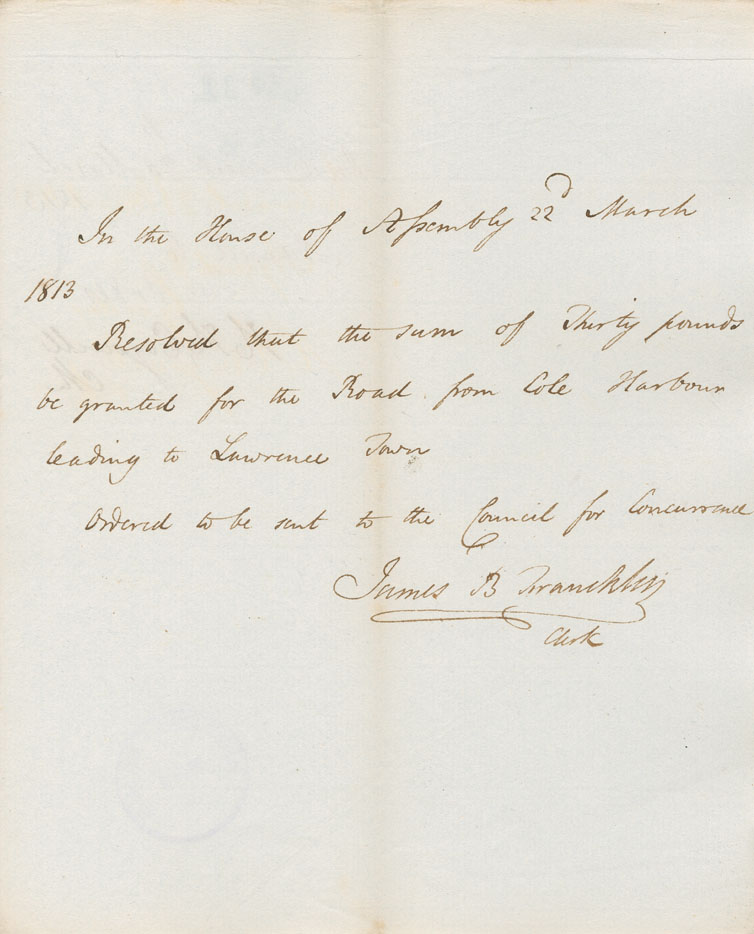 In the House of Assembly 22d March
1813
Resolved that the sum of Thirty pounds
be granted for the Road from Cole Harbour
leading to Lawrence Town
Ordered to be sent to the Council for Concurrence
James B Franckling
Clerk